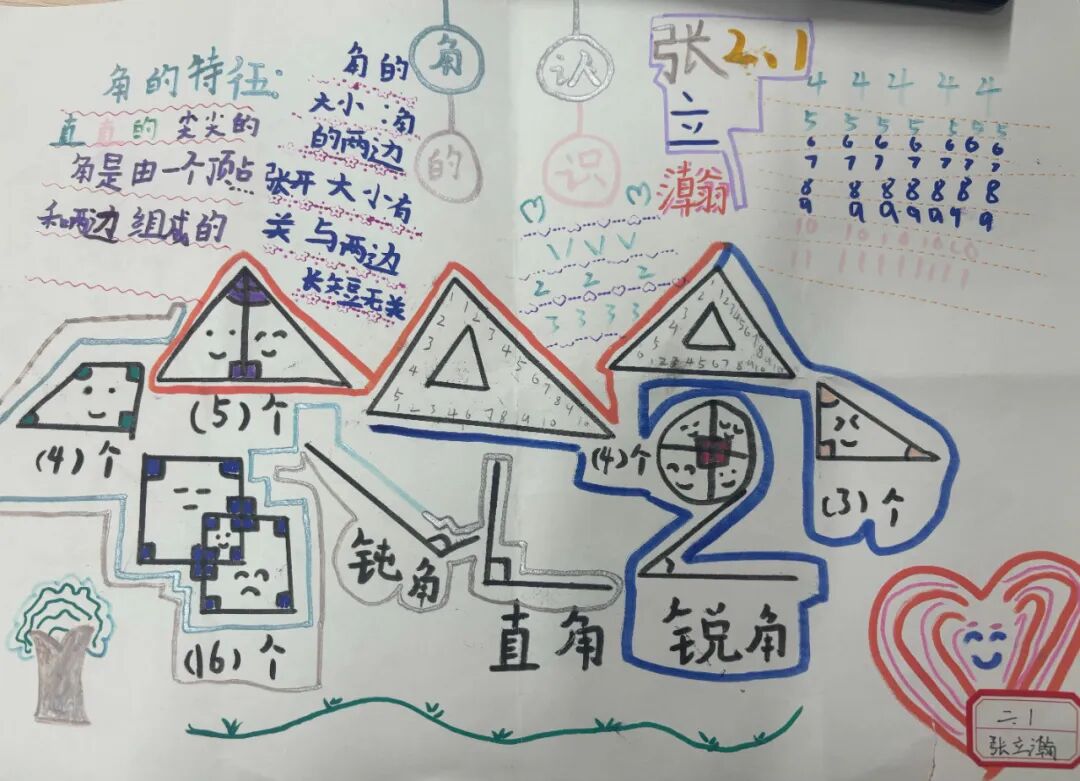 角的认识
张立瀚
2、1
角的特征:
直直的 尖尖的
角是由一个顶点
和两边组成的
角的
大小:角
的两边
张开大小有
关与两边
长短无关
3 3
1 1 1 1
2 2 2 2
3 3 3 3
4 4 4 4 4
5 5 5 5 5 5 5
6 6 6 6 6 6 6
7 7 7 7 7 7 7
8 8 8 8 8 8 8
9 9 9 9 9 9 9
10 10 10 10 10
11 11 11 11 11
(4)个
(5)个
(4)个
(3)个
(16)个
钝角
直角
锐角
二.1
张立瀚